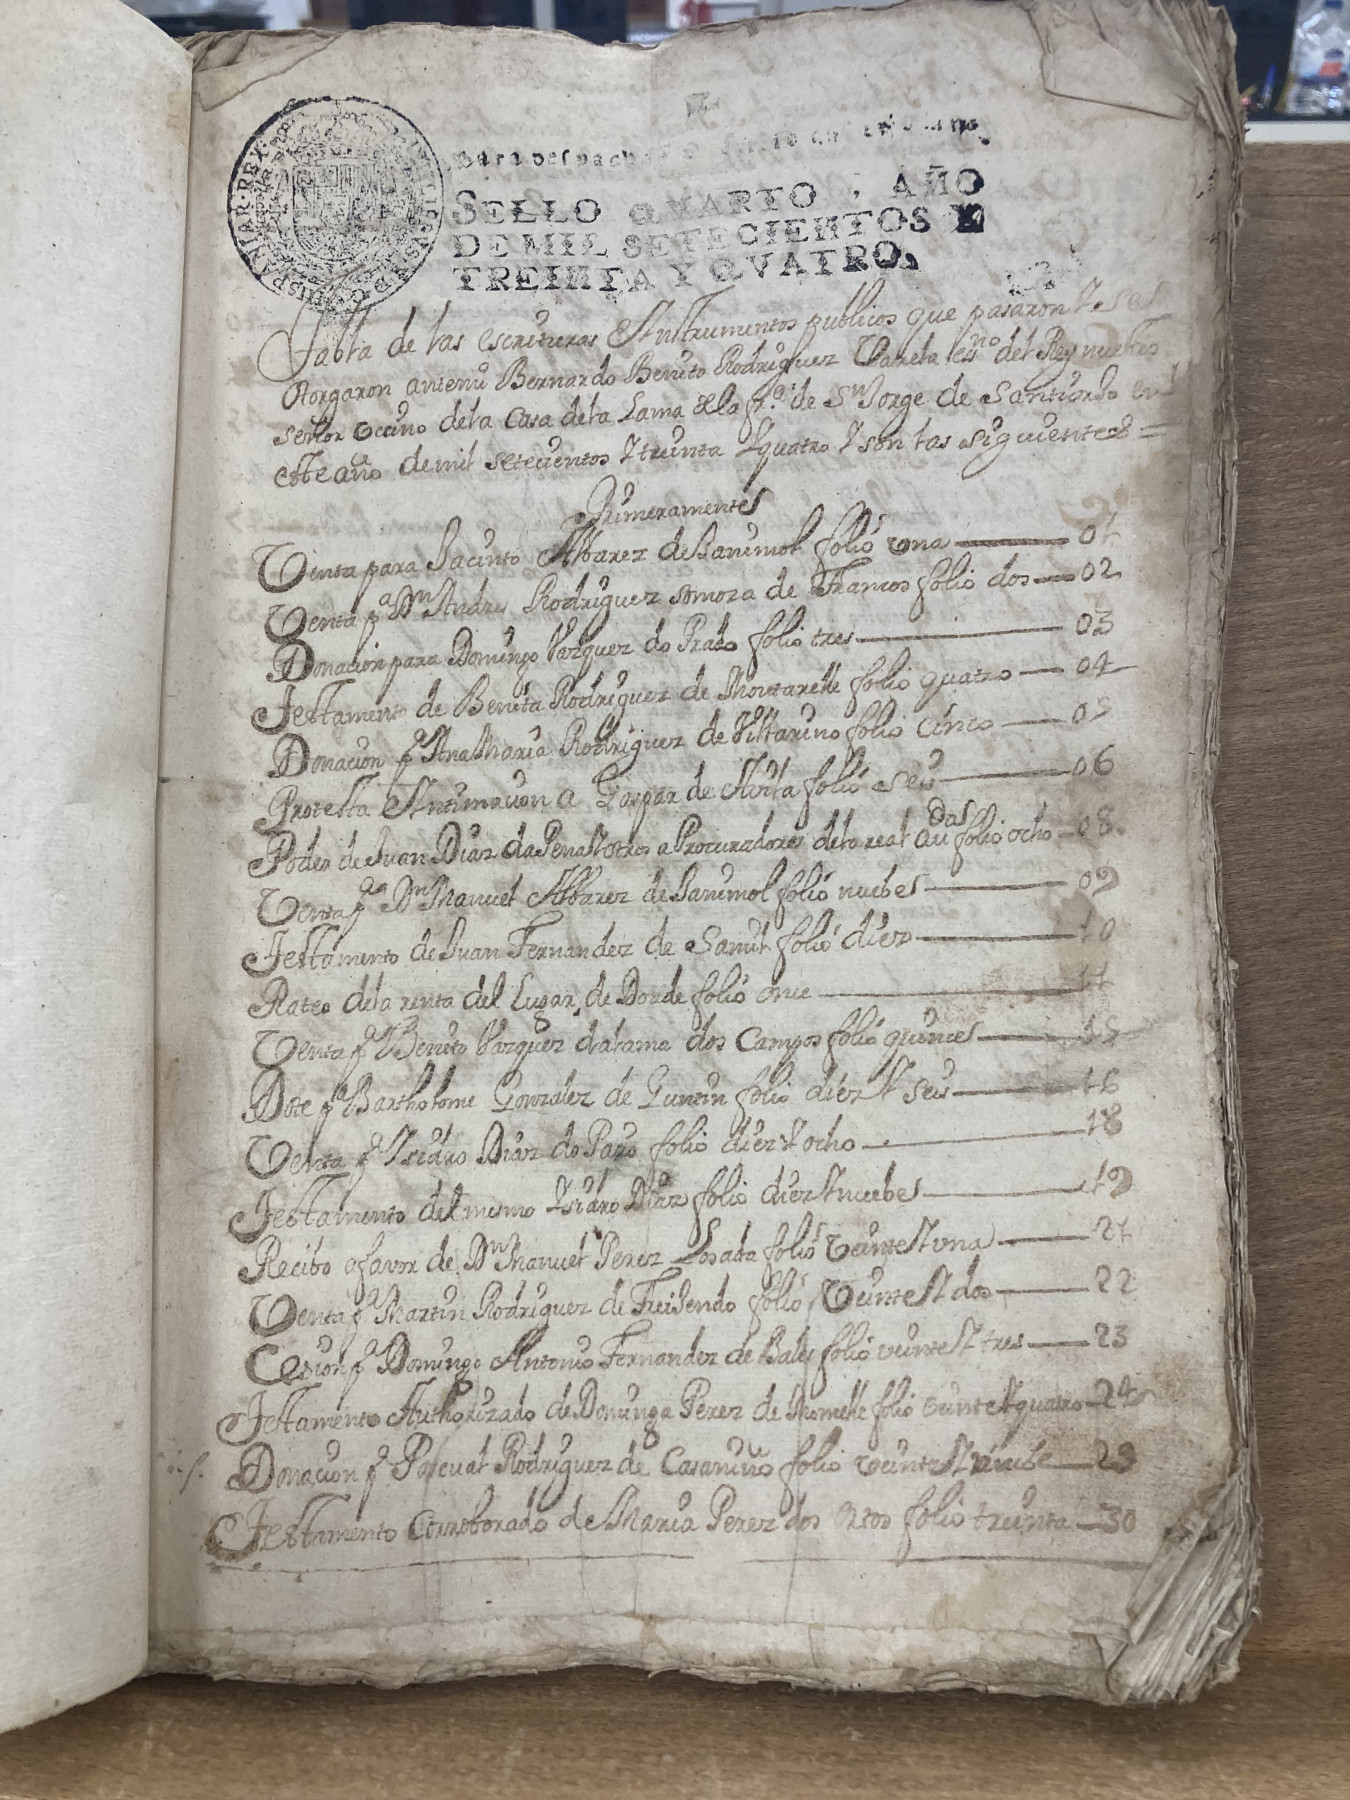 HISPANIAR REX
SELLO QVARTO, AÑO
DE MIL SETECIENTOS Y
TREINTA Y QVATRO.
Tabla de las escrituras Ynstrumentos publicos que pasaron Y se
otorgaron antemi Bernardo Benito Rodriguez Varela essno del Rey nuestro
señor vecino dela Casa dela Lama de Sn Jorge de Santiorxo en
este año de mil setecientos Y treinta Y quatro Y son las siguientes =
Primeramente
Venta para Jacinto Albarez de folio una 01
Venta pa Dn Andres Rodriguez somoza de Framos folio dos 02
Donacion para Domingo Vazquez do Prado folio tres 03
Testamento de Benita Rodriguez de folio quatro 04
Donacion pa Ana Maria Rodriguez de Villarino folio cinco 05
Protesta Yntimacion a Gaspar de folio seis 06
Poder de Juan Diaz da Pena Y otros a Procuradores dela real Audas folio ocho 08
Venta pa Dn Manuel Albarez de folio nuebe 09
Testamento de Juan Fernandez de folio diez 10
Rateo dela renta del Lugar de folio once 11
Venta pa Benito Vazquez dalama dos Campos folio quince 15
Dote pa Bartholome Gonzalez de Guntin folio diez Y seis 16
Venta pa Ysidro Diaz do Pazo folio diez Y ocho 18
Testamento del mesmo Ysidro Diaz folio diez Y nuebe 19
Recibo a favor de Dn Manuel Perez Losada folio veinte Y una 21
Venta pa Martin Rodriguez de folio Veinte Y dos 22
Cesion pa Domingo Antonio Fernandez de Bales folio veinte Y tres 23
Testamento Authorizado de Dominga Perez de folio veinte Y quatro 24
Donacion pa Pascual Rodriguez de Casanova folio veinte Y nuebe 29
Testamento Corroborado de Maria Perez dos folio treinta 30